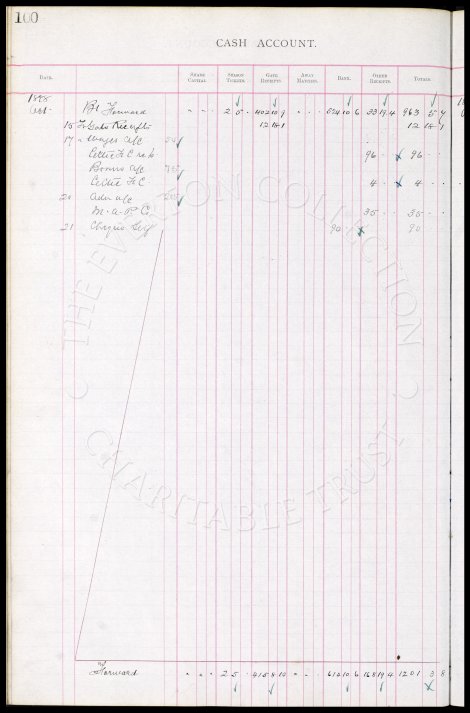 100
CASH ACCOUNT.
DATE. SHARE CAPITAL. SEASON TICKETS. GATE RECEIPTS. AWAY MATCHES. BANK. OTHER RECEIPTS. TOTALS.
1898
Oct. Bt Forward 25 402 10 9 524 10 6 33 19 4 963 5 7
15 To Gate Receipts 12 18 1 12 18 1
17 " Wages a/c
Celtic F.C. 96 96
Bonus a/c
Celtic F.C. 4 4
20
35 35
21 Cheque Self 90 90
Forward 25 415 8 10 614 10 6 168 19 4 1201 3 8
THE EVERTON COLLECTION
CHARITABLE TRUST